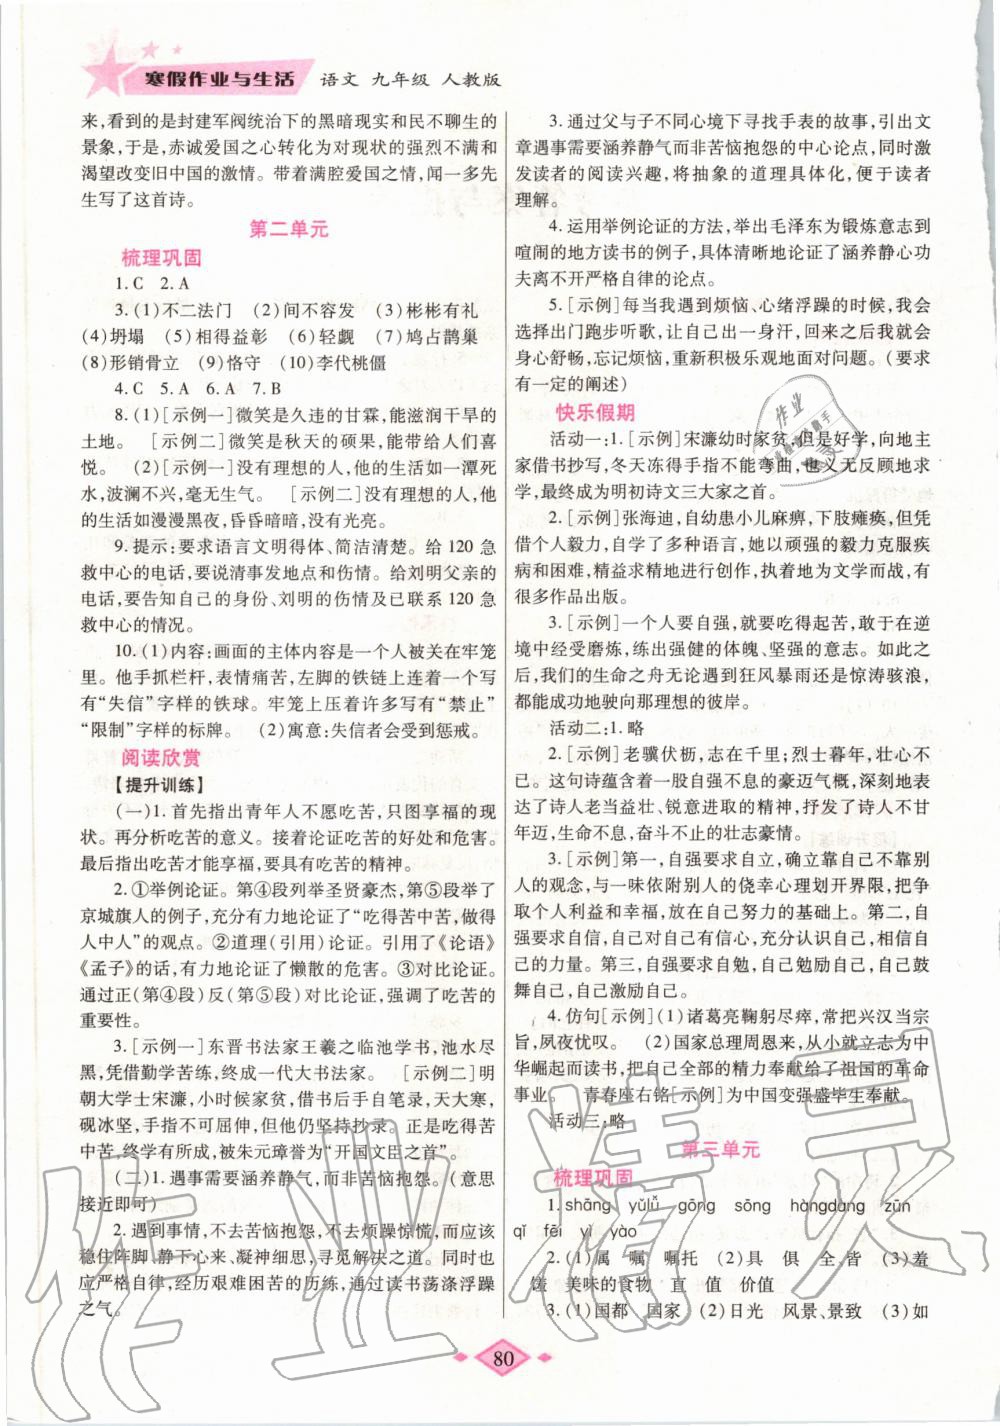 寒假作业与生活 语文 九年级 人教版
来,看到的是封建军阀统治下的黑暗现实和民不聊生的
景象,于是,赤诚爱国之心转化为对现状的强烈不满和
渴望改变旧中国的激情。带着满腔爱国之情,闻一多先
生写了这首诗。
第二单元
梳理巩固
1.C 2.A
3.(1)不二法门 (2)间不容发 (3)彬彬有礼
(4)坍塌 (5)相得益彰 (6)轻觑 (7)鸠占鹊巢
(8)形销骨立 (9)恪守 (10)李代桃僵
4.C 5.A 6.A 7.B
8.(1)[示例一]微笑是久违的甘霖,能滋润干旱的
土地。 [示例二]微笑是秋天的硕果,能带给人们喜
悦。 (2)[示例一]没有理想的人,他的生活如一潭死
水,波澜不兴,毫无生气。 [示例二]没有理想的人,他
的生活如漫漫黑夜,昏昏暗暗,没有光亮。
9.提示:要求语言文明得体、简洁清楚。给 120 急
救中心的电话,要说清事发地点和伤情。给刘明父亲的
电话,要告知自己的身份、刘明的伤情及已联系 120 急
救中心的情况。
10.(1)内容:画面的主体内容是一个人被关在牢笼
里。他手抓栏杆,表情痛苦,左脚的铁链上连着一个写
有“失信”字样的铁球。牢笼上压着许多写有“禁止”
“限制”字样的标牌。 (2)寓意:失信者会受到惩戒。
阅读欣赏
【提升训练】
(一)1.首先指出青年人不愿吃苦,只图享福的现
状。再分析吃苦的意义。接着论证吃苦的好处和危害。
最后指出吃苦才能享福,要具有吃苦的精神。
2.①举例论证。第④段列举圣贤豪杰,第⑤段举了
京城旗人的例子,充分有力地论证了“吃得苦中苦,做得
人中人”的观点。②道理(引用)论证。引用了《论语》
《孟子》的话,有力地论证了懒散的危害。③对比论证。
通过正(第④段)反(第⑤段)对比论证,强调了吃苦的
重要性。
3.[示例一]东晋书法家王羲之临池学书,池水尽
黑,凭借勤学苦练,终成一代大书法家。 [示例二]明
朝大学士宋濂,小时候家贫,借书后亲手自笔录,天大寒,
砚冰坚,手指不可屈伸,但他仍坚持抄录。正是吃得苦
中苦,终学有所成,被朱元璋誉为“开国文臣之首”。
(二)1.遇事需要涵养静气,而非苦恼抱怨。(意思
接近即可)
2.遇到事情,不去苦恼抱怨,不去烦躁惊慌,而应该
稳住阵脚,静下心来、凝神细思、寻觅解决之道。同时也
应严格自律,经历艰难困苦的历练,通过读书荡涤浮躁
之气。
3.通过父与子不同心境下寻找手表的故事,引出文
章遇事需要涵养静气而非苦恼抱怨的中心论点,激发了
读者的阅读兴趣,将抽象的道理具体化,便于读者
理解。
4.运用举例论证的方法,举出毛泽东为锻炼意志到
喧闹的地方读书的例子,具体清晰地论证了涵养静心功
夫离不开严格自律的论点。
5.[示例]每当我遇到烦恼、心绪浮躁的时候,我会
选择出门跑步听歌,让自己出一身汗,回来之后我就会
身心舒畅,忘记烦恼,重新积极乐观地面对问题。(要求
有一定的阐述)
快乐假期
活动一:1.[示例]宋濂幼时家贫,但是好学,向地主
家借书抄写,冬天冻得手指不能弯曲,也义无反顾地求
学,最终成为明初诗文三大家之首。
2.[示例]张海迪,自幼患小儿麻痹,下肢瘫痪,但凭
借个人毅力,自学了多种语言,她以顽强的毅力克服疾
病和困难,精益求精地进行创作,执着地为文学而战,有
很多作品出版。
3.[示例]一个人要自强,就要吃得起苦,敢于在逆
境中经受磨炼,练出强健的体魄、坚强的意志。如此之
后,我们的生命之舟无论遇到狂风暴雨还是惊涛骇浪,
都能成功地驶向那理想的彼岸。
活动二:1.略
2.[示例]老骥伏枥,志在千里;烈士暮年,壮心不
已。这句诗蕴含着一股自强不息的豪迈气概,深刻地表
达了诗人老当益壮、锐意进取的精神,抒发了诗人不甘
年迈,生命不息,奋斗不止的壮志豪情。
3.[示例]第一,自强要求自立,确立靠自己不靠别
人的观念,与一味依赖别人的侥幸心理划开界限,把争
取个人利益和幸福,放在自己努力的基础上。第二,自
强要求自信,自己对自己有信心,充分认识自己,相信自
己的力量。第三,自强要求自勉,自己勉励自己,自己鼓
舞自己,自己激励自己。
4.仿句[示例](1)诸葛亮鞠躬尽瘁,常把兴汉当宗
旨,夙夜忧叹。 (2)国家总理周恩来,从小就立志为中
华崛起而读书,把自己全部的精力奉献给了祖国的革命
事业。 青春座右铭[示例]为中国变强盛毕生奉献。
活动三:略
第三单元
梳理巩固
1.shāng yǔlǚ gōng sōng hàngdàng zūn
qǐ fēi yì yào
2.(1)属 嘱 嘱托 (2)具 俱 全、皆 (3)羞
馐 美味的食物 直 值 价值
3.(1)国都 国家 (2)日光 风景、景致 (3)如
80
作业精灵